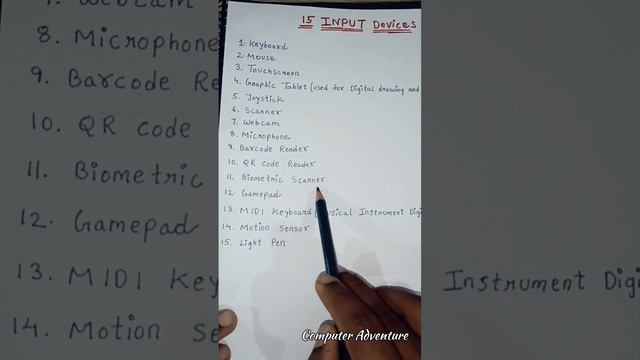 15 INPUT Devices
1. Keyboard
2. Mouse
3. Touchscreen
4. Graphic Tablet (used for Digital drawing and
5. Joystick
6. Scanner
7. Webcam
8. Microphone
9. Barcode Reader
10. QR code Reader
11. Biometric Scanner
12. Gamepad
13. MIDI Keyboard (Musical Instrument Digi
14. Motion Sensor
15. Light Pen
Computer Adventure
7. Webcam
8. Microphone
9. Barcode Re
10. QR code
11. Biometric
12. Gamepad
13. MIDI Key
Instrument Digi
14. Motion Se